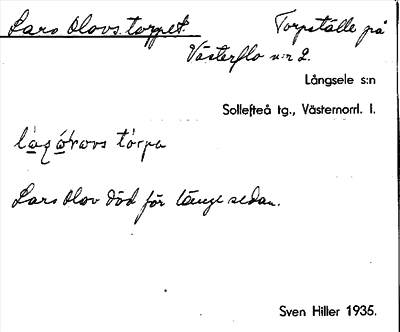 Lars Olovs torpet. Torpställe på
Västerflo n:r 2.
Långsele s:n
Sollefteå tg., Västernorrl. l.
torpa
Lars Olov död för länge sedan.
Sven Hiller 1935.